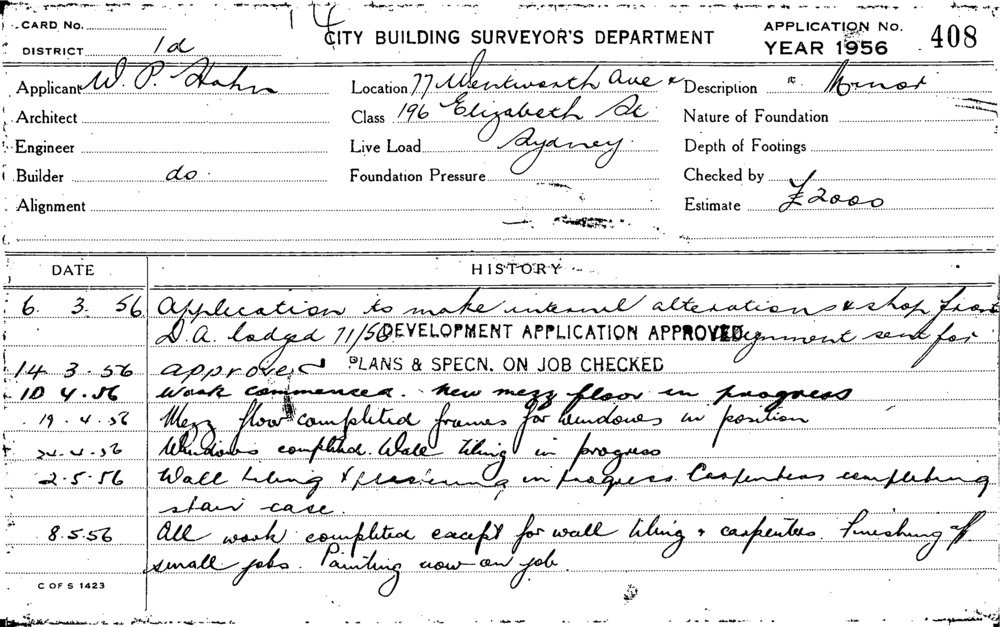 CARD No.
14
CITY BUILDING SURVEYOR'S DEPARTMENT
APPLICATION No.
YEAR 1956
408
DISTRICT 1d
Applicant W. P. Hahn
Location 77 Wentworth Ave &
Description Minor
Architect
Class 196 Elizabeth St
Nature of Foundation
Engineer
Live Load Sydney
Depth of Footings
Builder do.
Foundation Pressure
Checked by
Alignment
Estimate £2000
DATE
HISTORY
6. 3. 56 Application to make internal alterations & shop front
D.A. lodged 71/56 DEVELOPMENT APPLICATION APPROVED sent for
14 3.56 approved PLANS & SPECN. ON JOB CHECKED
10 4.56 Work commenced. New mezz floor in progress
19.4.56 Mezz floor completed frames for windows in position
24.4.56 Windows completed. Wall tiling in progress
2.5.56 Wall tiling & in progress. Carpenters completing
stair case.
8.5.56 All work completed except for wall tiling & carpenters finishing off
small jobs. Painting now on job.
C OF S 1423